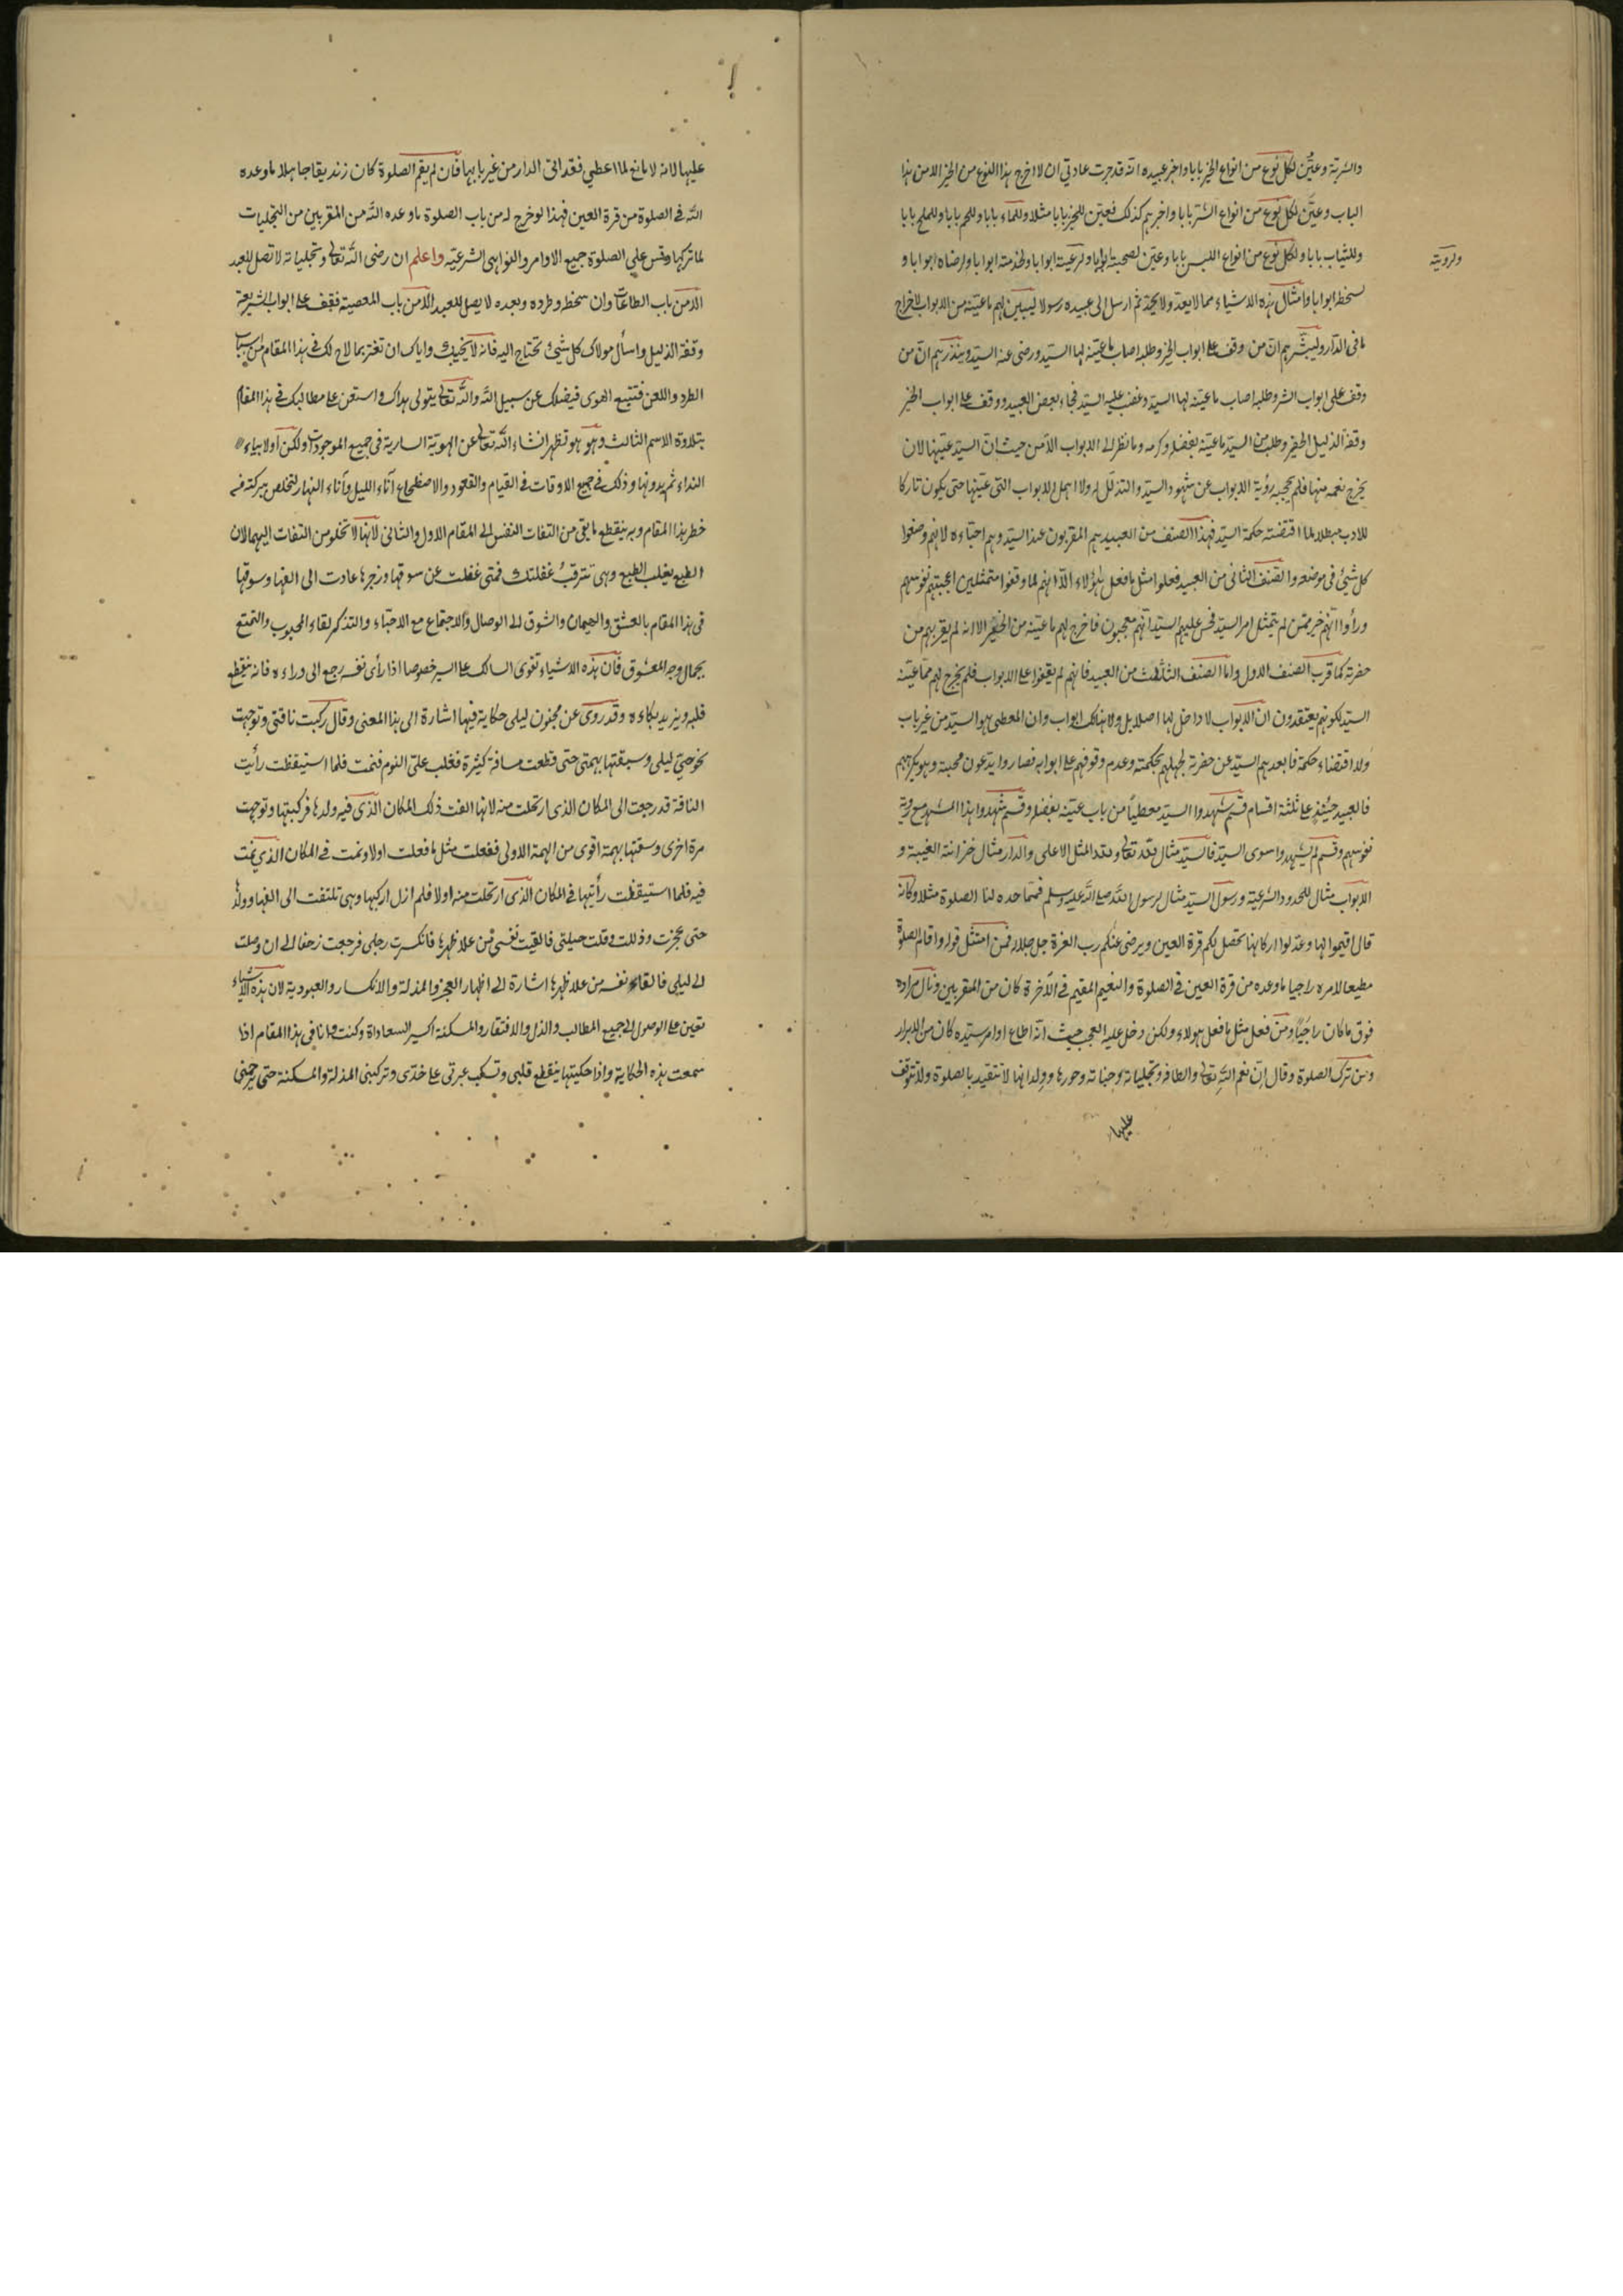 والشربة وعيّن لكل نوع من انواع الخير بابا واخبر عبيده انه قد جرت عادتي ان لا اخرج هذا النوع من الخير الا من هذا
الباب وعيّن لكل نوع من انواع الشر بابا واخبرهم كذلك فعيّن للخبز بابا مثلا وللماء بابا وللحم بابا وللملح بابا
وللثياب بابا ولكل نوع من انواع اللبس بابا وعيّن لصحبته ابوابا ولرعيته ابوابا ولخدمته ابوابا ولرضاه ابوابا و
ولرويته
لسخطه ابوابا وامثال هذه الاشياء مما لا يعدّ ولا يحدّ ثم ارسل الى عبيده رسولا ليبيّن لهم ما عيّنه من الابواب لاخراج
ما فى الدار وليبشّرهم انّ من وقف على ابواب الخير وطلبه اصاب ما عيّنه لها السيّد ورضى عنه السيّد وينذرهم انّ من
وقف على ابواب الشر وطلبه اصاب ما عيّنه لها السيّد وغضب عليه السيّد فجاء بعض العبيد ووقف على ابواب الخير
وقفة الذليل الحقير وطلب من السيّد ما عيّنه بفضله وكرمه وما نظر الى الابواب الا من حيث انّ السيّد عيّنها لان
يخرج نعمه منها فلم تحجبه رؤية الابواب عن شهود السيّد والتذلّل له ولا اهمل الابواب التى عيّنها حتى يكون تاركا
للادب مبطلا لما اقتضته حكمة السيّد فهذا الصنف من العبيد هم المقربون عند السيّد وهم احبّاءه لانهم وضعوا
كل شئ فى موضعه والصّنف الثانى من العبيد فعلوا مثل ما فعل هؤلاء الّا انهم لما وقفوا متمثلين اعجبتهم نفوسهم
ورأوا انّهم خير ممّن لم يتمثل امر السيّد فحس عليهم السيّد انّهم معجبون فاخرج لهم ما عيّنه من الخير الا انه لم يقربهم من
حضرته كما قرب الصنف الاول واما الصنف الثالث من العبيد فانهم لم يقفوا على الابواب فلم يخرج لهم ممّا عيّنه
السيّد لكونهم يعتقدون ان الابواب لا داخل لها اصلا بل ولا هناك ابواب وان المعطى هو السيّد من غير باب
ولا اقتضاء حكمة فابعدهم السيّد عن حضرته لجهلهم بحكمته وعدم وقوفهم على ابوابه فصاروا يدّعون محبته وهو يكرههم
فالعبيد حينئذٍ على ثلثة اقسام قسم شهدوا السيّد معطيا من باب عيّنه بفضله وقسم شهدوا هذا المشهد مع روية
نفوسهم وقسم لم يشهدوا سوى السيّد فالسيّد مثال لله تعالى ولله المثل الاعلى والدار مثال خزانته الغيبية و
الابواب مثال للحدود الشرعيّة ورسول السيّد مثال لرسول الله صلى الله عليه وسلم فممّا حده لنا الصلوة مثلا وكانّه
قال اقيموا لها وعدّلوا اركانها تحصل بكم قرة العين ويرضى عنكم رب العزة جل جلاله فمن امتثل قوله واقام الصلوة
مطيعا لامره راجيا ما وعده من قرة العين فى الصلوة والنعيم المقيم فى الآخرة كان من المقربين ونال مراده
فوق ما كان راجيًا ومن فعل مثل ما فعل هولاء ولكن دخل عليه العجب بحيث انّه اطاع اوامر سيّده كان من الابرار
ومن ترك الصلوة وقال انّ نعم الله تعالى والطافه وتجلياته وجنّاته وحورها وولدانها لا تتقيد بالصلوة ولا تتوقف
عليها
عليها لانه لا مانع لما اعطي فقد اتى الدار من غير بابها فان لم يقم الصلوة كان زنديقا جاهلا ما وعده
الله فى الصلوة من قرة العين فهذا لو خرج له من باب الصلوة ما وعده الله من المقربين من التجليات
لما تركها وقس على الصلوة جميع الاوامر والنواهى الشرعيّه واعلم ان رضى الله تعالى وتجلياته لا تصل للعبد
الا من باب الطاعات وان سخطه وطرده وبعده لا يصل للعبد الا من باب المعصية فقف على ابواب الشريعة
وقفة الذليل واسأل مولاك كل شئ تحتاج اليه فانه لا يخيبك واياك ان تغتر بما لاح لك فى هذا المقام من اسباب
الطرد واللعن فتتبع الهوى فيضلك عن سبيل الله والله تعالى يتولى هداك واستعن على مطالبك فى هذا المقام
بتلاوة الاسم الثالث وهو هو تظهر انشاء الله تعالى عن الهويّة السارية فى جميع الموجودات ولكن اولا بياء
النداء ثم بدونها وذلك فى جميع الاوقات فى القيام والقعود والاضطجاع آناء الليل وآناء النهار لتخلص ببركته من
خطر هذا المقام وبه ينقطع ما بقى من التفات النفس الى المقام الاول والثانى لانها لا تخلو من التفات اليهما لان
الطبع يغلب الطبع وهى تترقب غفلتك فمتى غفلت عن سوقها وزجرها عادت الى الفها وسوقها
فى هذا المقام بالعشق والهيمان والشوق الى الوصال والاجتماع مع الاحبّاء والتذكر لقاء المحبوب والتمتع
بجمال وجه المعشوق فان هذه الاشياء تقوى السالك على السير خصوصا اذا رأى نفسه رجع الى وراءه فانه ينقطع
قلبه ويزيد بكاءه وقد روى عن مجنون ليلى حكاية فيها اشارة الى هذا المعنى وقال ركبت ناقتى وتوجهت
نحو حيّ ليلى وسبقتها بهمتى حتى قطعت مسافة كثيرة فغلب علىّ النوم فنمت فلما استيقظت رأيت
الناقة قد رجعت الى المكان الذى ارتحلت منه لانها الفت ذلك المكان الذى فيه ولدها فركبتها وتوجهت
مرة اخرى وسقتها بهمة اقوى من الهمة الاولى ففعلت مثل ما فعلت اولا ونمت فى المكان الذى نمت
فيه فلما استيقظت رأيتها فى المكان الذى ارتحلت منه اولا فلم ازل اركبها وهى تلتفت الى الفها وولدها
حتى عجزت وذللت وقلت حيلتى فالقيت نفسى من على ظهرها فانكسرت رجلى فرجعت زحفا الى ان وصلت
الى ليلى فالقاء نفسه من على ظهرها اشارة الى اظهار العجز والمذلة والانكسار والعبودية لان هذه الاشياء
تعين على الوصول الى جميع المطالب والذل والافتقار والمسكنة اكسير السعادة وكنت وانا فى هذا المقام اذا
سمعت بهذه الحكاية واذا حكيتها ينقطع قلبى وتسكب عبرتى على خدّى وتركبنى المذلة والمسكنة حتى يرحمنى